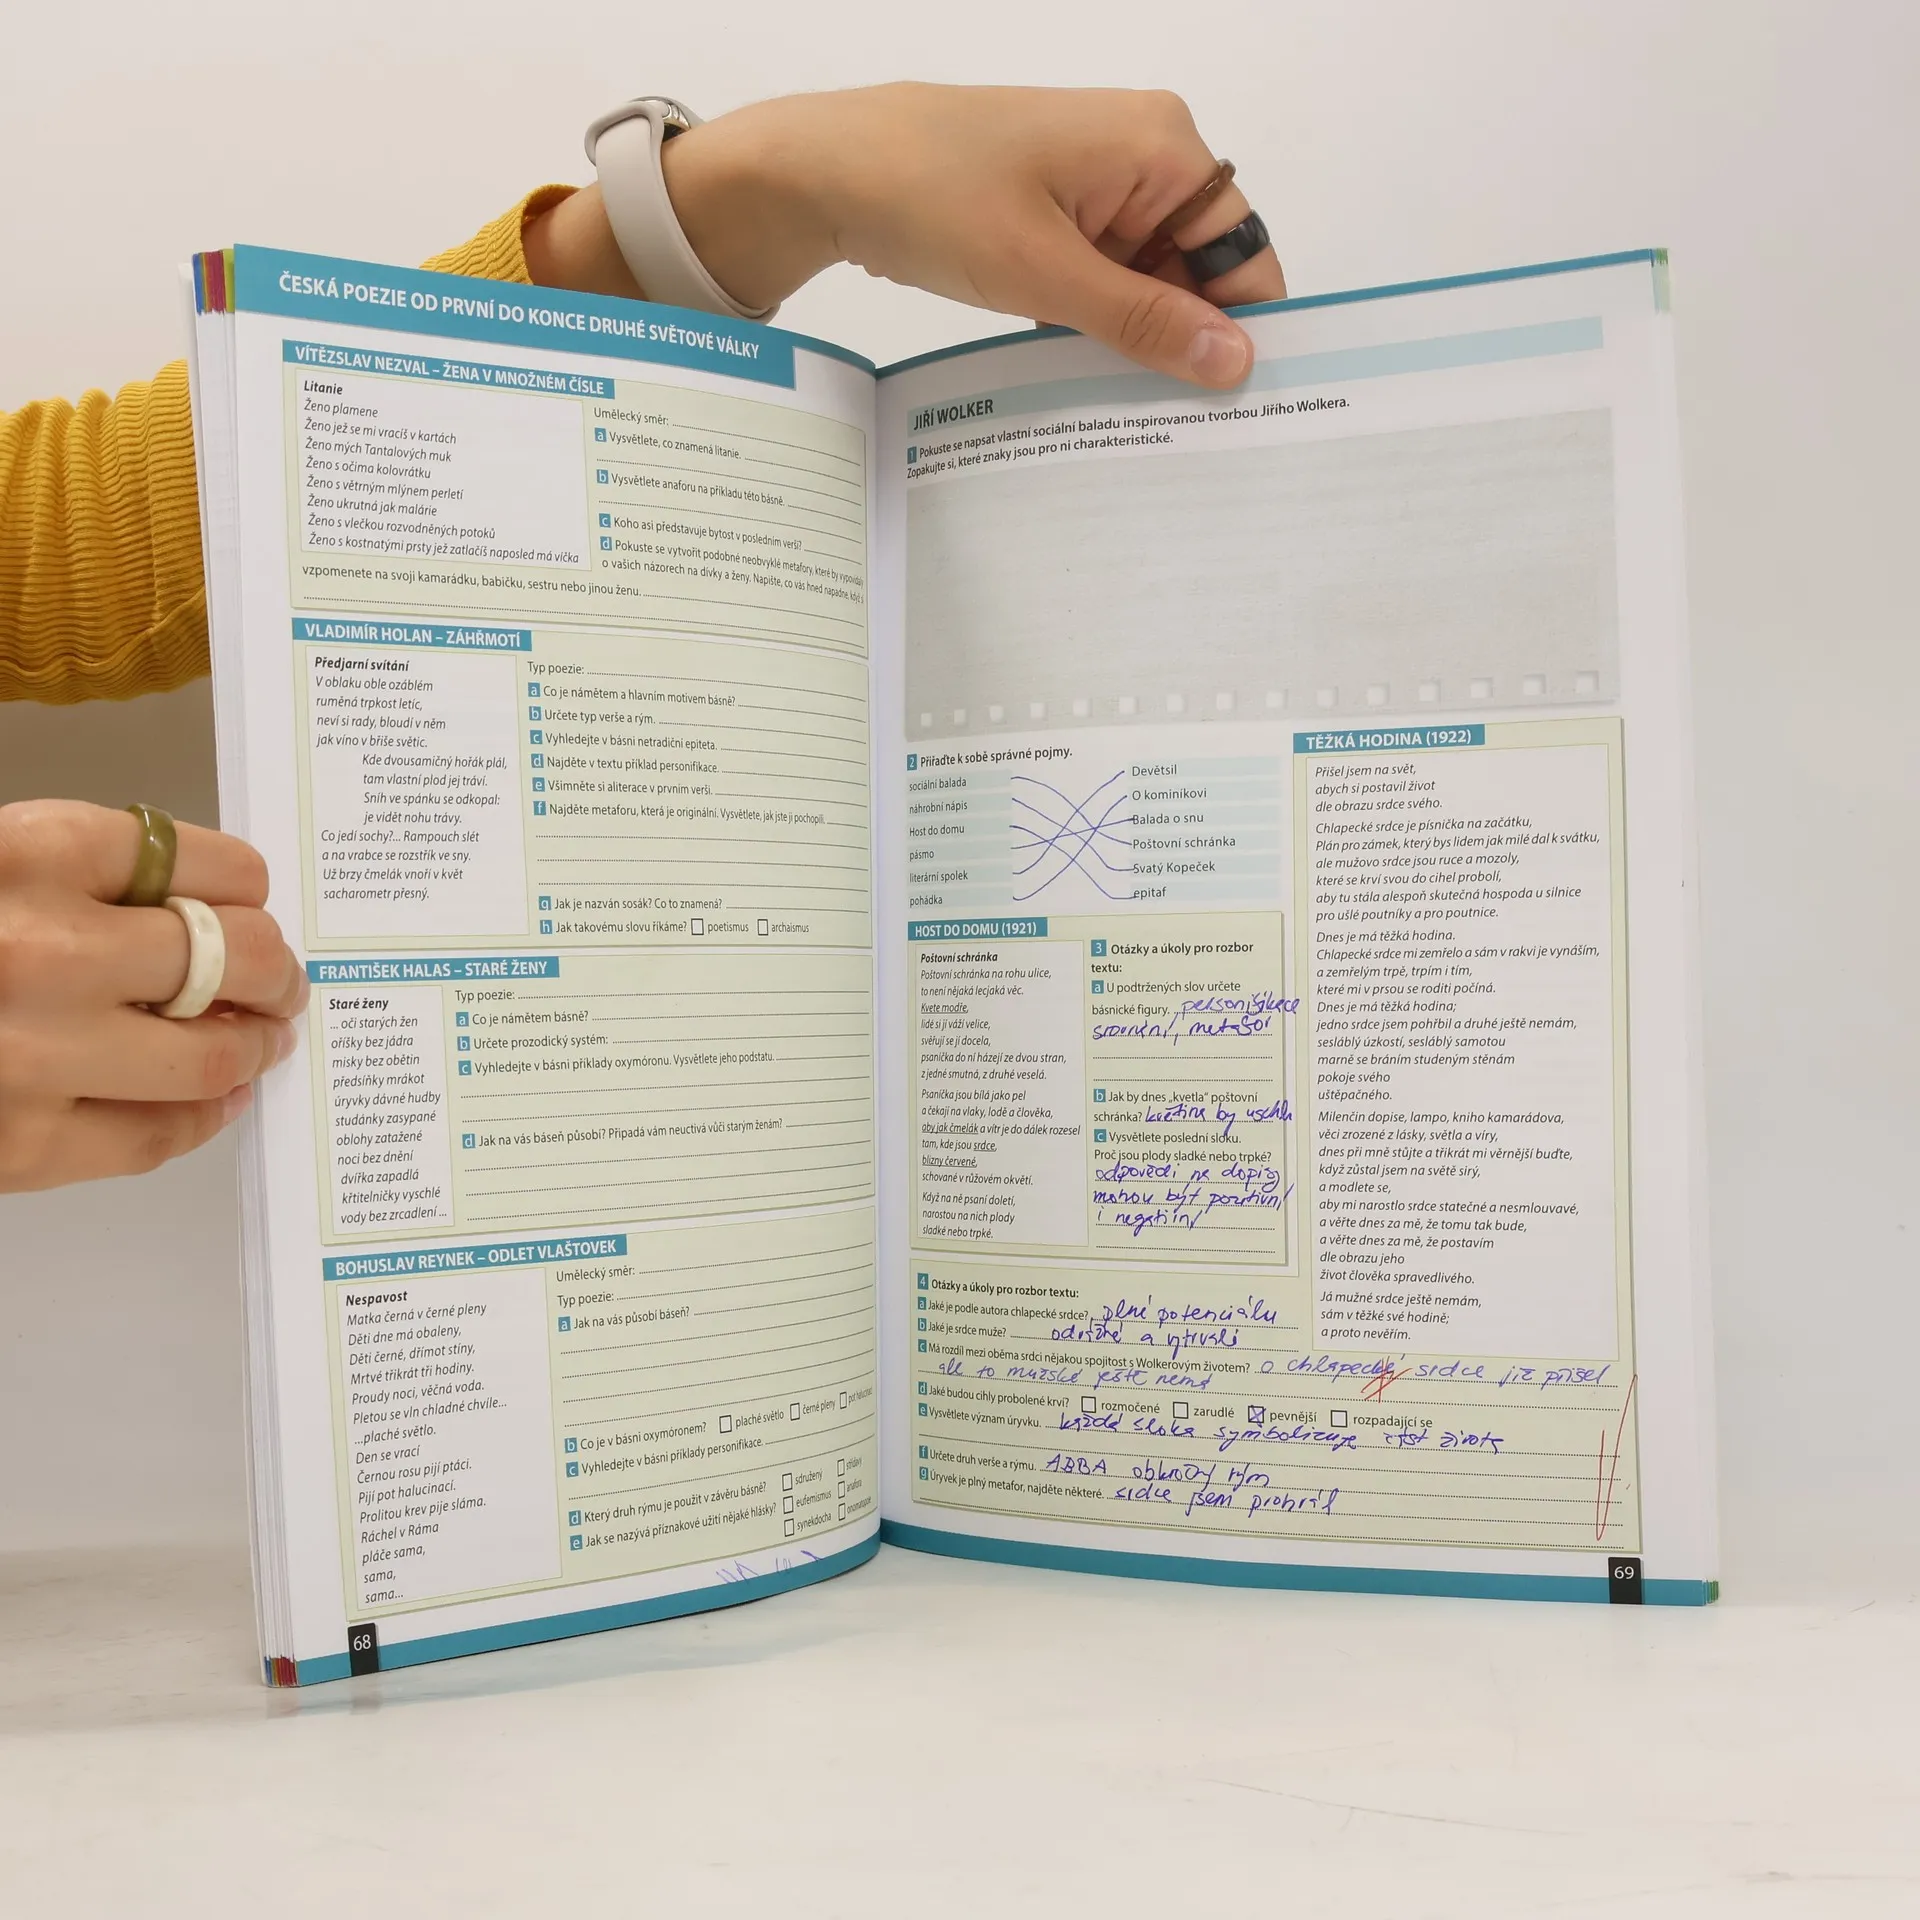 ČESKÁ POEZIE OD PRVNÍ DO KONCE DRUHÉ SVĚTOVÉ VÁLKY
VÍTĚZSLAV NEZVAL – ŽENA V MNOŽNÉM ČÍSLE
Litanie
Ženo plamene
Ženo jež se mi vracíš v kartách
Ženo mých Tantalových muk
Ženo s očima kolovrátku
Ženo s větrným mlýnem perletí
Ženo ukrutná jak malárie
Ženo s vlečkou rozvodněných potoků
Ženo s kostnatými prsty jež zatlačíš naposled má víčka
Umělecký směr:
a Vysvětlete, co znamená litanie.
b Vysvětlete anaforu na příkladu této básně.
c Koho asi představuje bytost v posledním verši?
d Pokuste se vytvořit podobné neobvyklé metafory, které by vypovídaly
o vašich názorech na dívky a ženy. Napište, co vás hned napadne, když si
vzpomenete na svoji kamarádku, babičku, sestru nebo jinou ženu.
VLADIMÍR HOLAN – ZÁHŘMOTÍ
Předjarní svítání
V oblaku oble ozáblém
ruměná trpkost letíc,
neví si rady, bloudí v něm
jak víno v břiše světic.
Kde dvousamičný hořák plál,
tam vlastní plod jej tráví.
Sníh ve spánku se odkopal:
je vidět nohu trávy.
Co jedí sochy?... Rampouch slét
a na vrabce se rozstřík ve sny.
Už brzy čmelák vnoří v květ
sacharometr přesný.
Typ poezie:
a Co je námětem a hlavním motivem básně?
b Určete typ verše a rým.
c Vyhledejte v básni netradiční epiteta.
d Najděte v textu příklad personifikace.
e Všimněte si aliterace v prvním verši.
f Najděte metaforu, která je originální. Vysvětlete, jak jste ji pochopili.
g Jak je nazván sosák? Co to znamená?
h Jak takovému slovu říkáme? poetismus archaismus
FRANTIŠEK HALAS – STARÉ ŽENY
Staré ženy
... oči starých žen
oříšky bez jádra
misky bez obětin
předsíňky mrákot
úryvky dávné hudby
studánky zasypané
oblohy zatažené
noci bez dnění
dvířka zapadlá
křtitelničky vyschlé
vody bez zrcadlení ...
Typ poezie:
a Co je námětem básně?
b Určete prozodický systém:
c Vyhledejte v básni příklady oxymóronu. Vysvětlete jeho podstatu.
d Jak na vás báseň působí? Připadá vám neuctivá vůči starým ženám?
BOHUSLAV REYNEK – ODLET VLAŠTOVEK
Nespavost
Matka černá v černé pleny
Děti dne má obaleny,
Děti černé, dřímot stíny,
Mrtvé třikrát tři hodiny.
Proudy noci, věčná voda.
Pletou se vln chladné chvíle...
...plaché světlo.
Den se vrací
Černou rosu pijí ptáci.
Pijí pot halucinací.
Prolitou krev pije sláma.
Ráchel v Ráma
pláče sama,
sama,
sama...
Umělecký směr:
Typ poezie:
a Jak na vás působí báseň?
b Co je v básni oxymóronem? plaché světlo černé pleny pot halucinací
c Vyhledejte v básni příklady personifikace.
d Který druh rýmu je použit v závěru básně? sdružený střídavý
e Jak se nazývá příznakové užití nějaké hlásky? eufemismus anafora
synekdocha onomatopoie
68
JIŘÍ WOLKER
1 Pokuste se napsat vlastní sociální baladu inspirovanou tvorbou Jiřího Wolkera.
Zopakujte si, které znaky jsou pro ni charakteristické.
2 Přiřaďte k sobě správné pojmy.
sociální balada
náhrobní nápis
Host do domu
pásmo
literární spolek
pohádka
Devětsil
O kominíkovi
Balada o snu
Poštovní schránka
Svatý Kopeček
epitaf
HOST DO DOMU (1921)
Poštovní schránka
Poštovní schránka na rohu ulice,
to není nějaká lecjaká věc.
Kvete modře,
lidé si jí váží velice,
svěřují se jí docela,
psaníčka do ní házejí ze dvou stran,
z jedné smutná, z druhé veselá.
Psaníčka jsou bílá jako pel
a čekají na vlaky, lodě a člověka,
aby jak čmelák a vítr je do dálek rozesel
tam, kde jsou srdce,
blizny červené,
schované v růžovém okvětí.
Když na ně psaní doletí,
narostou na nich plody
sladké nebo trpké.
3 Otázky a úkoly pro rozbor
textu:
a U podtržených slov určete
básnické figury. personifikace
srovnání, metafor
b Jak by dnes „kvetla“ poštovní
schránka? květina by uschla
c Vysvětlete poslední sloku.
Proč jsou plody sladké nebo trpké?
odpovědi na dopisy
mohou být pozitivní
i negativní
TĚŽKÁ HODINA (1922)
Přišel jsem na svět,
abych si postavil život
dle obrazu srdce svého.
Chlapecké srdce je písnička na začátku,
Plán pro zámek, který bys lidem jak milé dal k svátku,
ale mužovo srdce jsou ruce a mozoly,
které se krví svou do cihel probolí,
aby tu stála alespoň skutečná hospoda u silnice
pro ušlé poutníky a pro poutnice.
Dnes je má těžká hodina.
Chlapecké srdce mi zemřelo a sám v rakvi je vynáším,
a zemřelým trpě, trpím i tím,
které mi v prsou se roditi počíná.
Dnes je má těžká hodina;
jedno srdce jsem pohřbil a druhé ještě nemám,
sesláblý úzkostí, sesláblý samotou
marně se bráním studeným stěnám
pokoje svého
uštěpačného.
Milenčin dopise, lampo, kniho kamarádova,
věci zrozené z lásky, světla a víry,
dnes při mně stůjte a třikrát mi věrnější buďte,
když zůstal jsem na světě sirý,
a modlete se,
aby mi narostlo srdce statečné a nesmlouvavé,
a věřte dnes za mě, že tomu tak bude,
a věřte dnes za mě, že postavím
dle obrazu jeho
život člověka spravedlivého.
Já mužné srdce ještě nemám,
sám v těžké své hodině;
a proto nevěřím.
4 Otázky a úkoly pro rozbor textu:
a Jaké je podle autora chlapecké srdce? plné potenciálu
b Jaké je srdce muže? odvážné a vytrvalé
c Má rozdíl mezi oběma srdci nějakou spojitost s Wolkerovým životem? o chlapecké srdce již přišel
ale to mužské ještě nemá
d Jaké budou cihly probolené krví? rozmočené zarudlé pevnější rozpadající se
e Vysvětlete význam úryvku. každá sloka symbolizuje část života
f Určete druh verše a rýmu. ABBA obkročný rým
g Úryvek je plný metafor, najděte některé. srdce jsem prohrál
69